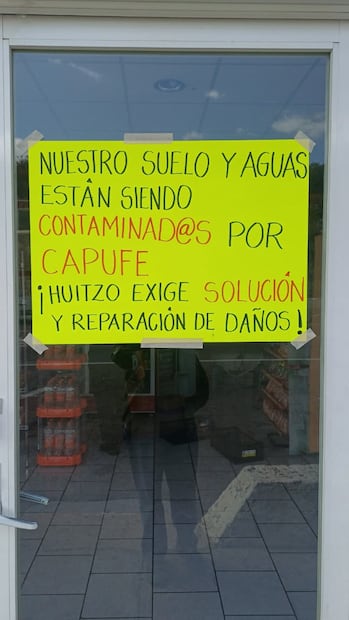 NUESTRO SUELO Y AGUAS
ESTÁN SIENDO
CONTAMINAD@S POR
CAPUFE
¡HUITZO EXIGE SOLUCIÓN
Y REPARACIÓN DE DAÑOS!